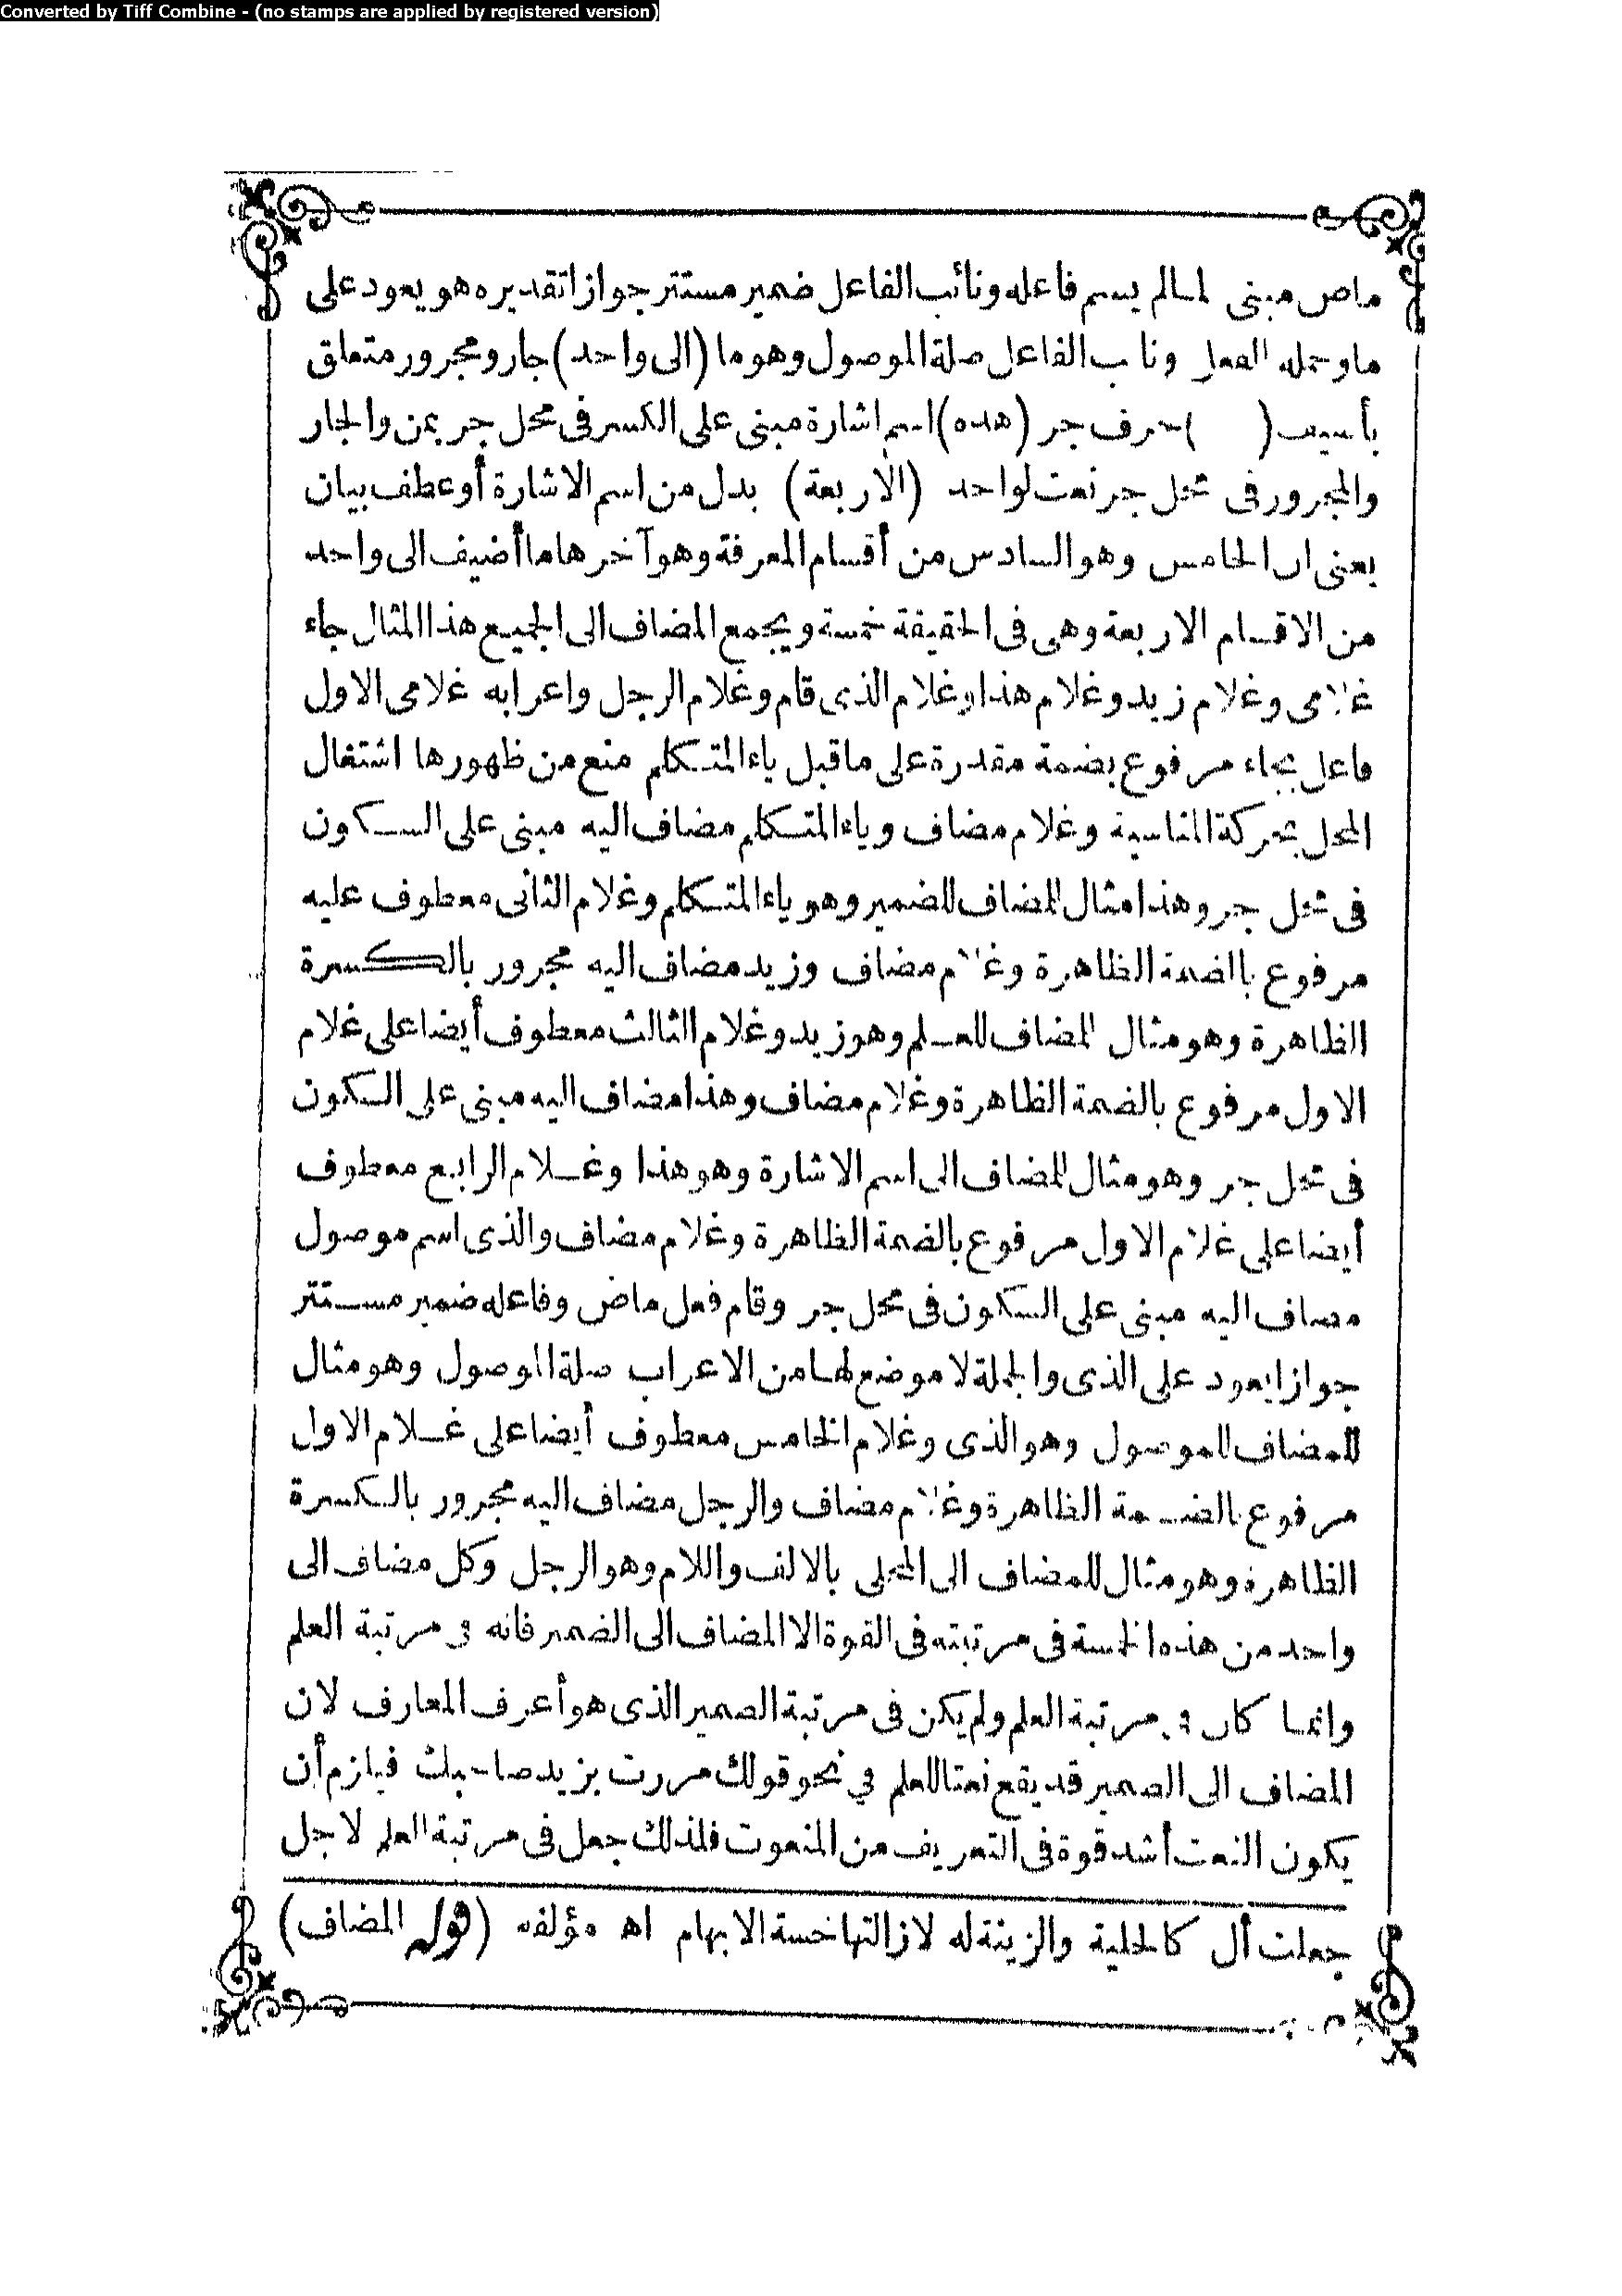 Converted by Tiff Combine - (no stamps are applied by registered version)
ماض مبنى لمالم يسم فاعله ونائب الفاعل ضمير مستتر جوازا تقديره هو يعود على
ما وجملة الفعل ونائب الفاعل صلة الموصول وهو ما (الى واحد) جار ومجرور متعلق
بأضيف ( ) حرف جر (هذه) اسم اشارة مبنى على الكسر فى محل جر بمن والجار
والمجرور فى محل جر نعت لواحد (الاربعة) بدل من اسم الاشارة أو عطف بيان
يعنى ان الخامس وهو السادس من أقسام المعرفة وهو آخرها ما أضيف الى واحد
من الاقسام الاربعة وهى فى الحقيقة خمسة ويجمع المضاف الى الجميع هذا المثال جاء
غلامى وغلام زيد وغلام هذا وغلام الذى قام وغلام الرجل واعرابه غلامى الاول
فاعل بجاء مرفوع بضمة مقدرة على ماقبل ياء المتكلم منع من ظهورها اشتغال
المحل بحركة المناسبة وغلام مضاف وياء المتكلم مضاف اليه مبنى على السكون
فى محل جر وهذا مثال المضاف للضمير وهو ياء المتكلم وغلام الثانى معطوف عليه
مرفوع بالضمة الظاهرة وغلام مضاف وزيد مضاف اليه مجرور بالكسرة
الظاهرة وهو مثال المضاف للعلم وهو زيد وغلام الثالث معطوف أيضا على غلام
الاول مرفوع بالضمة الظاهرة وغلام مضاف وهذا مضاف اليه مبنى على السكون
فى محل جر وهو مثال المضاف الى اسم الاشارة وهو هذا وغلام الرابع معطوف
أيضا على غلام الاول مرفوع بالضمة الظاهرة وغلام مضاف والذى اسم موصول
مضاف اليه مبنى على السكون فى محل جر وقام فعل ماض وفاعله ضمير مستتر
جوازا يعود على الذى والجملة لا موضع لها من الاعراب صلة الموصول وهو مثال
للمضاف للموصول وهو الذى وغلام الخامس معطوف أيضا على غلام الاول
مرفوع بالضمة الظاهرة وغلام مضاف والرجل مضاف اليه مجرور بالكسرة
الظاهرة وهو مثال للمضاف الى المحلى بالالف واللام وهو الرجل وكل مضاف الى
واحد من هذه الخمسة فى مرتبته فى القوة الا المضاف الى الضمير فانه فى مرتبة العلم
وانما كان فى مرتبة العلم ولم يكن فى مرتبة الضمير الذى هو أعرف المعارف لان
المضاف الى الضمير قد يقع نعتا للعلم في نحو قولك مررت بزيد صاحبك فيلزم أن
يكون النعت أشد قوة فى التعريف من المنعوت فلذلك جعل فى مرتبة العلم لاجل
جعلت أل كالحلية والزينة له لازالتها خسة الابهام اه مؤلفه (قوله المضاف)